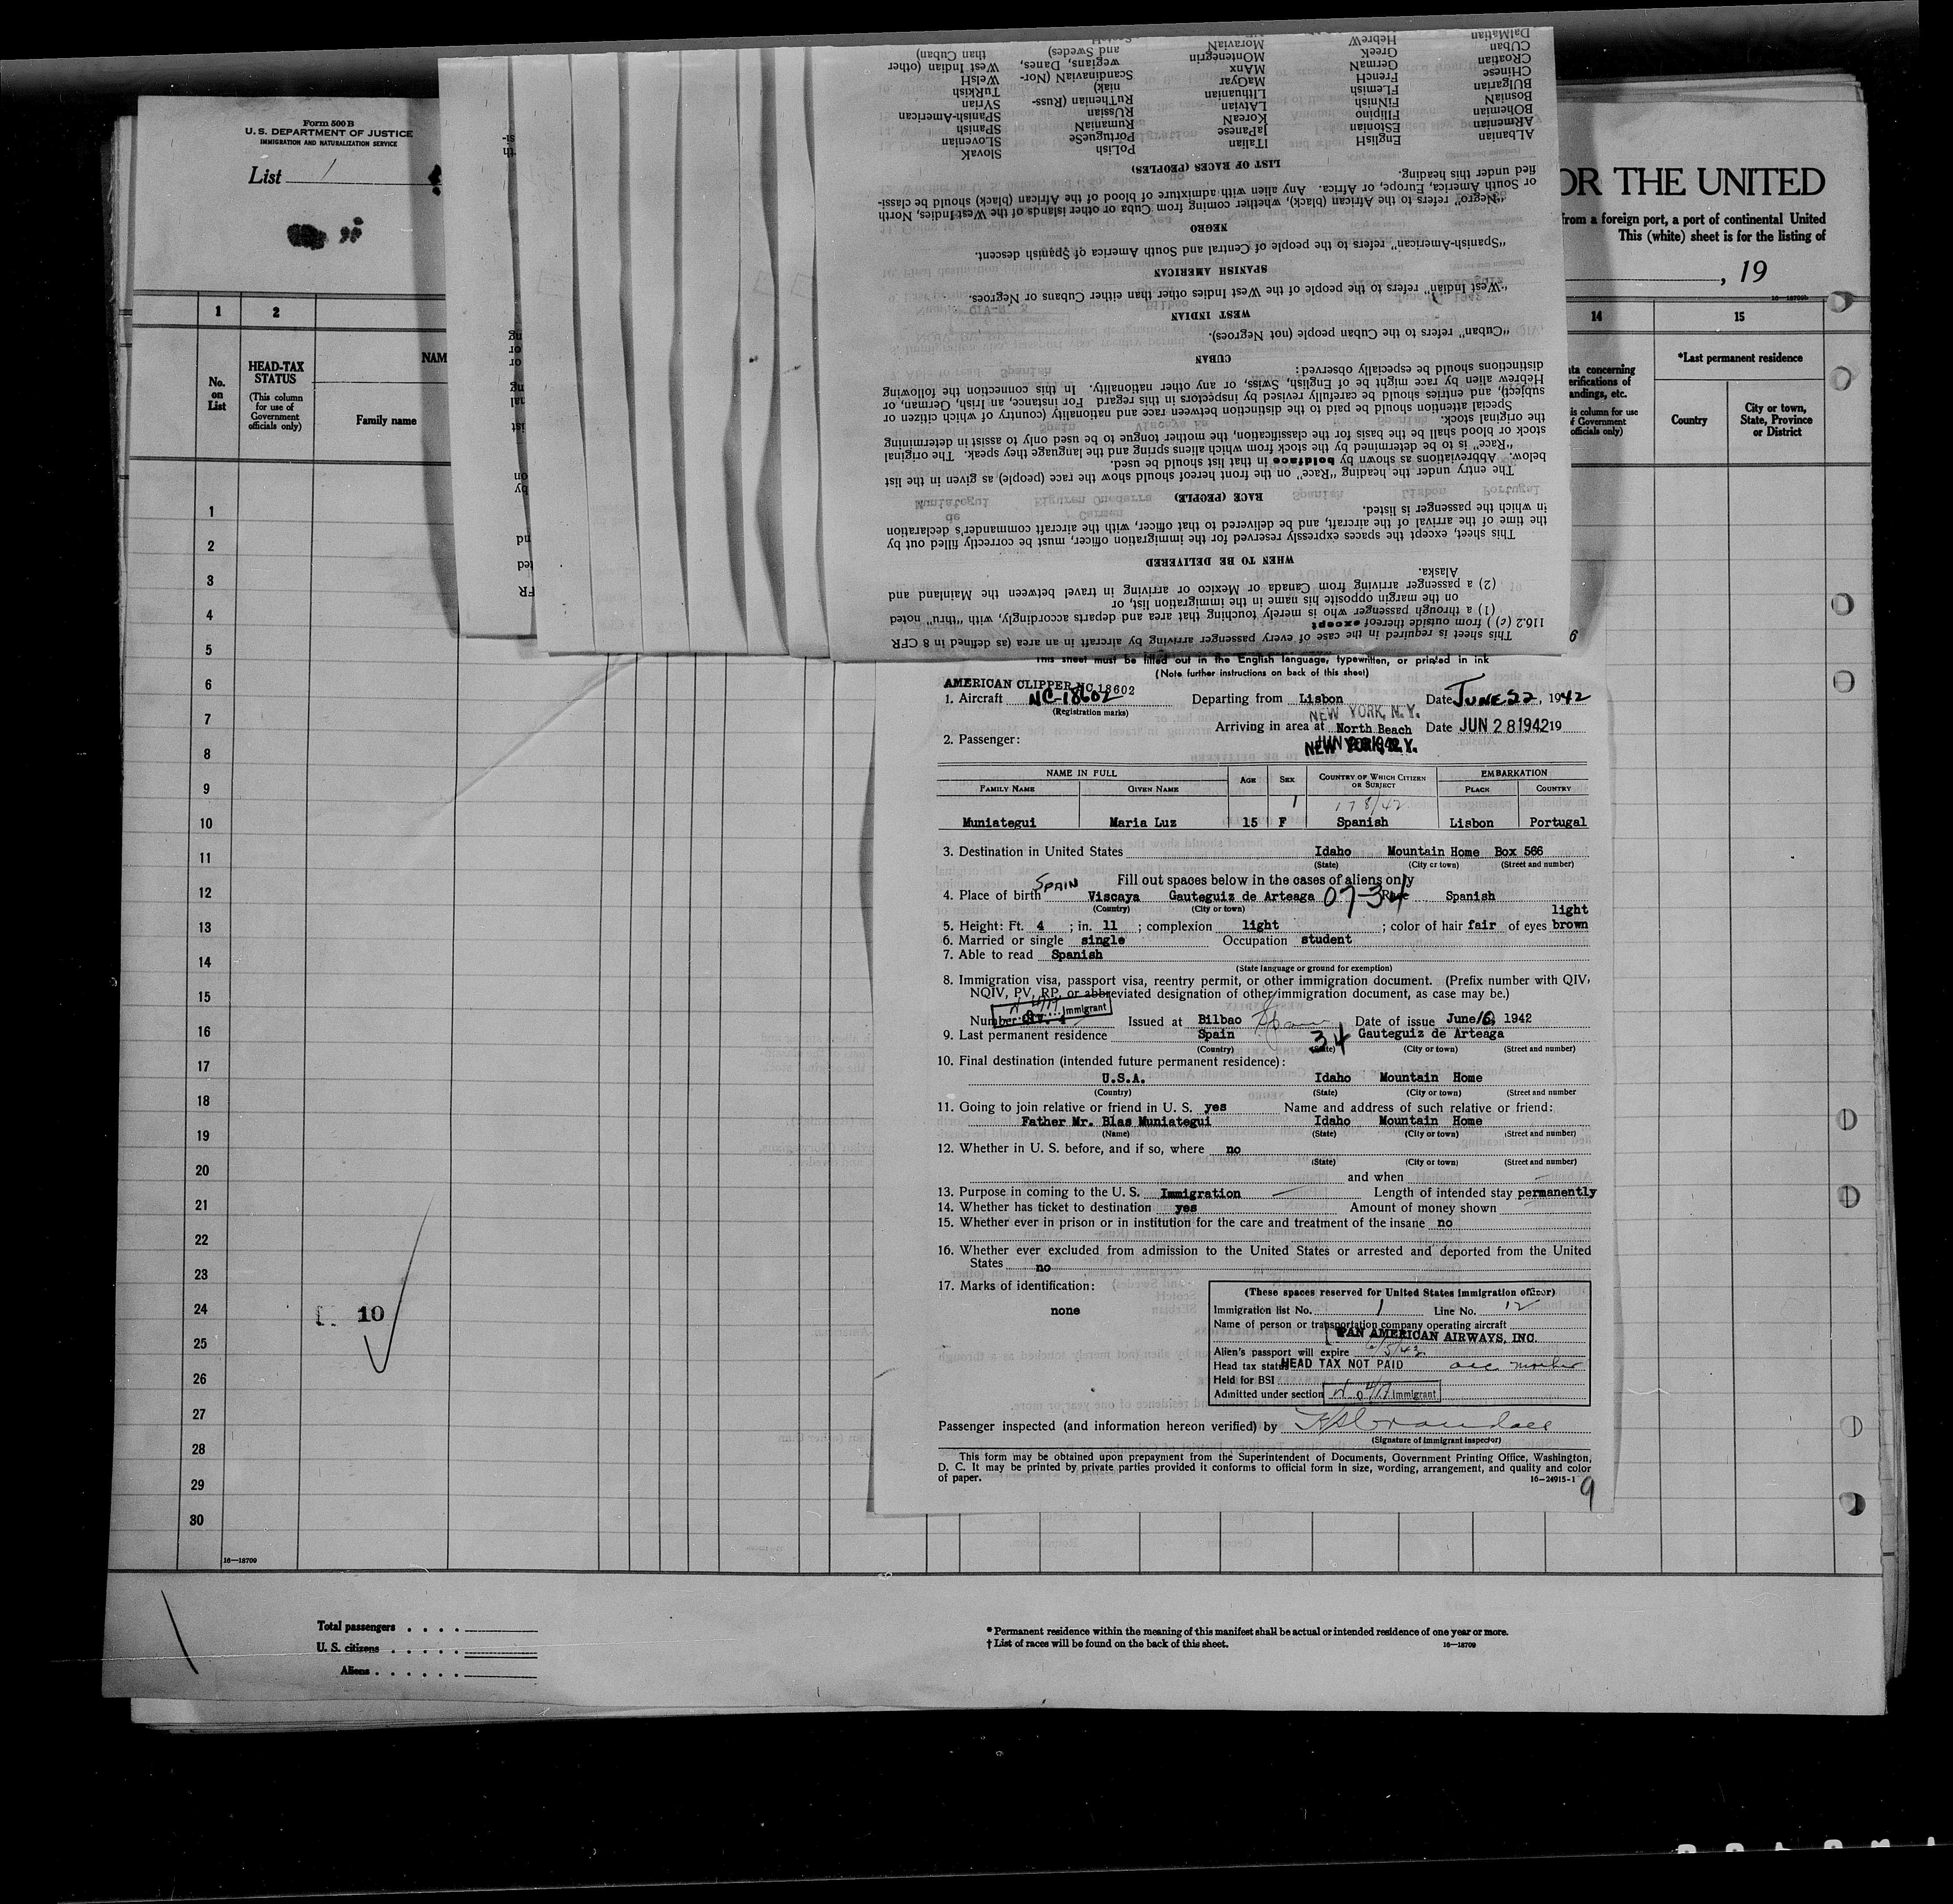 Form 500 B
U. S. DEPARTMENT OF JUSTICE
IMMIGRATION AND NATURALIZATION SERVICE
List 1
OR THE UNITED
from a foreign port, a port of continental United
This (white) sheet is for the listing of
, 19
16—18709b
1 2 14 15
No. on List
HEAD-TAX STATUS
(This column for use of Government officials only)
NAM
Family name
ata concerning
erifications of
andings, etc.
is column for use
f Government
officials only)
*Last permanent residence
Country
City or town, State, Province or District
1
2
3
4
5
6
7
8
9
10
11
12
13
14
15
16
17
18
19
20
21
22
23
24
25
26
27
28
29
30
10
16—18709
Total passengers . . . .
U. S. citizens . . . . .
Aliens . . . . . .
* Permanent residence within the meaning of this manifest shall be actual or intended residence of one year or more.
† List of races will be found on the back of this sheet.
16—18709
This sheet is required in the case of every passenger arriving by aircraft in an area (as defined in 8 CFR
116.2 (c) ) from outside thereof except
(1) a through passenger who is merely touching that area and departs accordingly, with "thru" noted
on the margin opposite his name in the immigration list, or
(2) a passenger arriving from Canada or Mexico or arriving in travel between the Mainland and
Alaska.
WHEN TO BE DELIVERED
This sheet, except the spaces expressly reserved for the immigration officer, must be correctly filled out by
the time of the arrival of the aircraft, and be delivered to that officer, with the aircraft commander's declaration
in which the passenger is listed.
RACE (PEOPLE)
The entry under the heading "Race" on the front hereof should show the race (people) as given in the list
below. Abbreviations as shown by boldface in that list should be used.
"Race" is to be determined by the stock from which aliens spring and the language they speak. The original
stock or blood shall be the basis for the classification, the mother tongue to be used only to assist in determining
the original stock.
Special attention should be paid to the distinction between race and nationality (country of which citizen or
subject), and entries should be carefully revised by inspectors in this regard For instance, an Irish, German, or
Hebrew alien by race might be of English, Swiss, or any other nationality. In this connection the following
distinctions should be especially observed:
CUBAN
"Cuban" refers to the Cuban people (not Negroes).
WEST INDIAN
"West Indian" refers to the people of the West Indies other than either Cubans or Negroes.
SPANISH AMERICAN
"Spanish-American" refers to the people of Central and South America of Spanish descent.
NEGRO
"Negro" refers to the African (black), whether coming from Cuba or other islands of the West Indies, North
or South America, Europe, or Africa. Any alien with admixture of blood of the African (black) should be classi-
fied under this heading.
LIST OF RACES (PEOPLES)
ALbanian EnglisH ITalian PoLish SlovaK
ARmenian EStonian JaPanese PortugueSe SLovenian
BOhemian Filipino KoreaN RumaniaN SPanish
BosniaN FiNnish LAtvian RUssian SPanish-American
BUlgarian FLemish LIthuanian RuThenian (Russ- SYrian
CHinese FrencH MaGyar niak) TuRkish
CRoatian GermaN MAnx ScandinaviaN (Nor- WelsH
CUban GreeK MOntenegrin wegians, Danes, West Indian (other
DalMatian HebreW MoraviaN and Swedes) than Cuban)
This sheet must be filled out in the English language, typewritten, or printed in ink
(Note further instructions on back of this sheet)
AMERICAN CLIPPER NC 18602
1. Aircraft NC-18602 Departing from Lisbon Date JUNE 22, 1942
(Registration marks)
NEW YORK, N. Y.
Arriving in area at North Beach Date JUN 28 1942 19
NEW YORK, N.Y.
2. Passenger:
NAME IN FULL AGE SEX COUNTRY OF WHICH CITIZEN OR SUBJECT EMBARKATION
FAMILY NAME GIVEN NAME PLACE COUNTRY
1 178/42
Muniategui Maria Luz 15 F Spanish Lisbon Portugal
3. Destination in United States Idaho Mountain Home Box 566
(State) (City or town) (Street and number)
Fill out spaces below in the cases of aliens only
SPAIN
4. Place of birth Viscaya Gauteguiz de Arteaga 07-34 Race Spanish
(Country) (City or town)
light
5. Height: Ft. 4 ; in. 11 ; complexion light ; color of hair fair of eyes brown
6. Married or single single Occupation student
7. Able to read Spanish
(State language or ground for exemption)
8. Immigration visa, passport visa, reentry permit, or other immigration document. (Prefix number with QIV,
NQIV, PV, RP, or abbreviated designation of other immigration document, as case may be.)
immigrant
Number Issued at Bilbao Spain Date of issue June 16, 1942
9. Last permanent residence Spain 34 Gauteguiz de Arteaga
(Country) (State) (City or town) (Street and number)
10. Final destination (intended future permanent residence):
U.S.A. Idaho Mountain Home
(Country) (State) (City or town) (Street and number
11. Going to join relative or friend in U. S. yes Name and address of such relative or friend:
Father Mr. Blas Muniategui Idaho Mountain Home
(Name) (State) (City or town) (Street and number)
12. Whether in U. S. before, and if so, where no
(State) (City or town) (Street and number)
and when
13. Purpose in coming to the U. S. Immigration Length of intended stay permanently
14. Whether has ticket to destination yes Amount of money shown
15. Whether ever in prison or in institution for the care and treatment of the insane no
16. Whether ever excluded from admission to the United States or arrested and deported from the United
States no
17. Marks of identification:
none
(These spaces reserved for United States immigration officer)
Immigration list No. 1 Line No. 12
Name of person or transportation company operating aircraft
PAN AMERICAN AIRWAYS, INC.
Alien's passport will expire 6/5/43
Head tax status HEAD TAX NOT PAID acc mother
Held for BSI
Admitted under section immigrant
Passenger inspected (and information hereon verified) by
(Signature of immigrant inspector)
This form may be obtained upon prepayment from the Superintendent of Documents, Government Printing Office, Washington,
D. C. It may be printed by private parties provided it conforms to official form in size, wording, arrangement, and quality and color
of paper.
16—24915-1
9